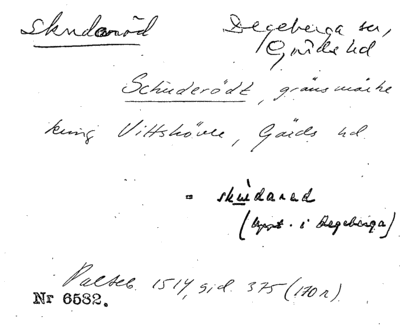 Skudaröd Degeberga sn,
Gärds hd
Schuderödt, gränsmärke
kring Vittskövle, Gärds hd.
= skudarud
(uppt. i Degeberga)
Palteb. 1514, sid. 375 (170 r).
Nr 6582.